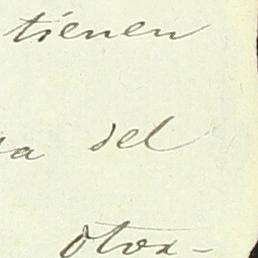 tienen
a del
otor-